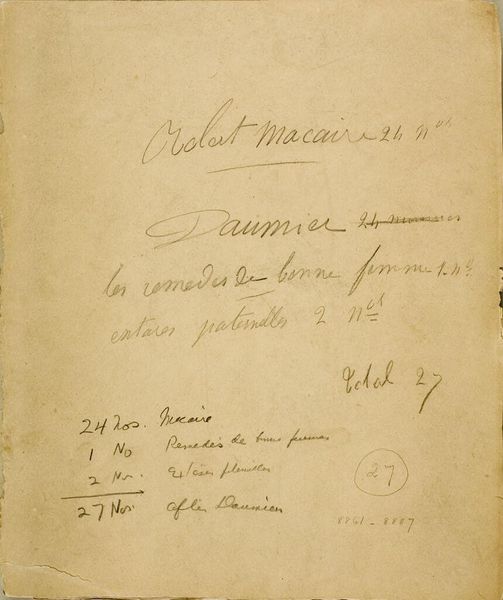 Robert Macaire 24 nos
Daumier 24 numeros
les remedes de bonne femme 1 no
extases paternelles 2 nos
Total 27
24 Nos. Macaire
1 No Remedes de bonne femmes
2 Nos. Extases
27 Nos. after Daumier
27
8861 - 8887